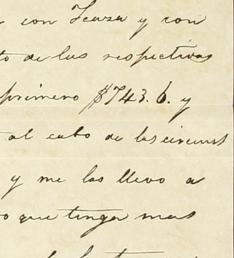 con Icaza y con
to de las respectivas
primero $743.6. y
al cabo de las circunst
y me las llevo a
o que tenga mas